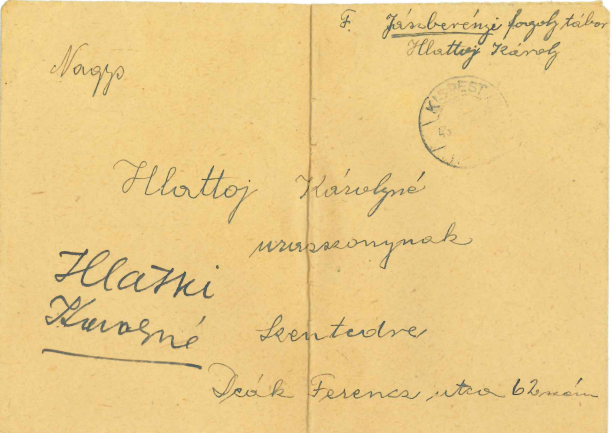 F. Jászberényi fogoly tábor
Hlattoj Károly
Nagys
KISPEST
Hlattoj Károlyné
urasszonynak
Hlatki
Károlyné
Szentedre
Deák Ferencz utca 62 szám